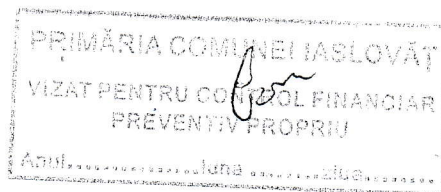 PRIMĂRIA COMUNEI IASLOVĂȚ
VIZAT PENTRU CONTROL FINANCIAR
PREVENTIV PROPRIU
Anul..............luna ..............ziua..............